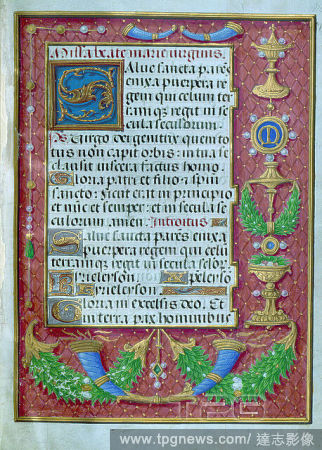 Missa beate marie virginis.
Salue sancta parēs
enixa puerpera re
gem qui celum ter
ram qȝ regit in se
cula seculorum.
Ps. Virgo dei genitrix quem to
tus non capit orbis: in tua se
clausit uiscera factus homo.
Gloria patri et filio et spiri
sancto: Sicut erat in principio
et nūc et semper: et in secula se
culorum. amen. Introitus.
Salue sancta parēs enixa
puerpera regem qui celū
terramqȝ regit in secula sclor.
Kyrieleyson. Xpeleyson.
Kyrieleyson.
Gloria in excelsis deo. Et
in terra pax hominibus
www.tpgnews.com / 達志影像